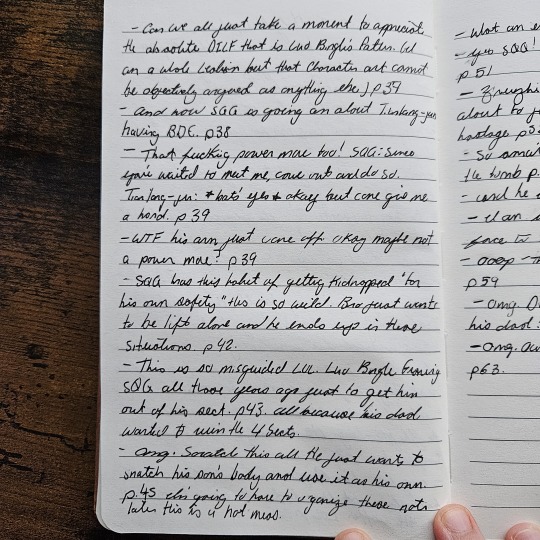 - Can we all just take a moment to appreciate
the absolute DILF that is Luo Binghe's Father. (I'm
am a whole lesbian but that character art cannot
be objectively argued as anything else.) p39
- and now SQG is going on about Tianlang-jun
having BDE. p38
- That fucking power move too! SQG: Since
you've waited to meet me, come out and do so.
Tianlang-jun: *bats eyes* okay but come give me
a hand. p.39
- WTF his arm just came off. okay maybe not
a power move? p39
- SQG has this habit of getting kidnapped "for
his own safety" this is so wild. Bro just wants
to be left alone and he ends up in these
situations. p42.
- This is so misguided LOL. Luo Binghe framing
SQG all those years ago just to get him
out of his sect. p43. all because his dad
wanted to ruin the 4 Sects.
- omg. Scratch this all he just wants to
snatch his son's body and use it as his own.
p.45 I'm going to have to organize these notes
later this is a hot mess.
- What an
- yes SQQ!
p51
about to
hostage
- So
the tomb p.
- and he
p59
- Omg.
his dad
- Omg.
p63.